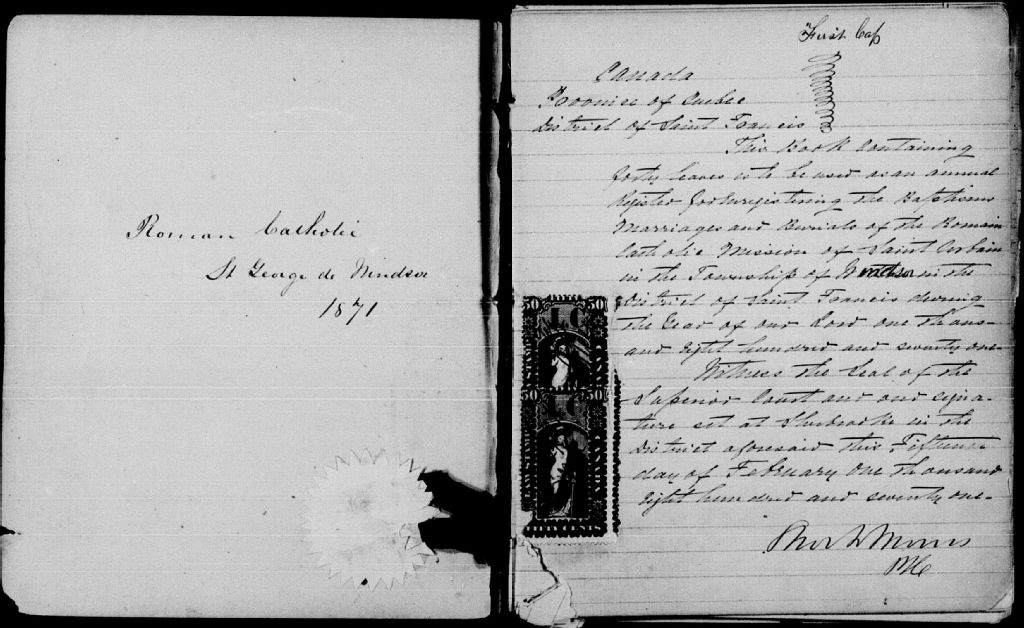 Roman Catholic
St George de Windsor
1871
First Cap
Canada
Province of Quebec
District of Saint Francis
This Book Containing
forty leaves is to be used as an annual
Register for Enregistering the Baptisms
Marriages and Burials of the Roman
Catholic Mission of Saint
in the Township of Windsor in the
District of Saint Francis during
the Year of our Lord one thous-
and Eight hundred and seventy one-
Witness the Seal of the
Superior Court and our signa-
ture set at Sherbrooke in the
District aforesaid this Fifteenth
day of February One thousand
Eight hundred and seventy one-
Morris
50 50
LC
50 50
LC
FIFTY CENTS